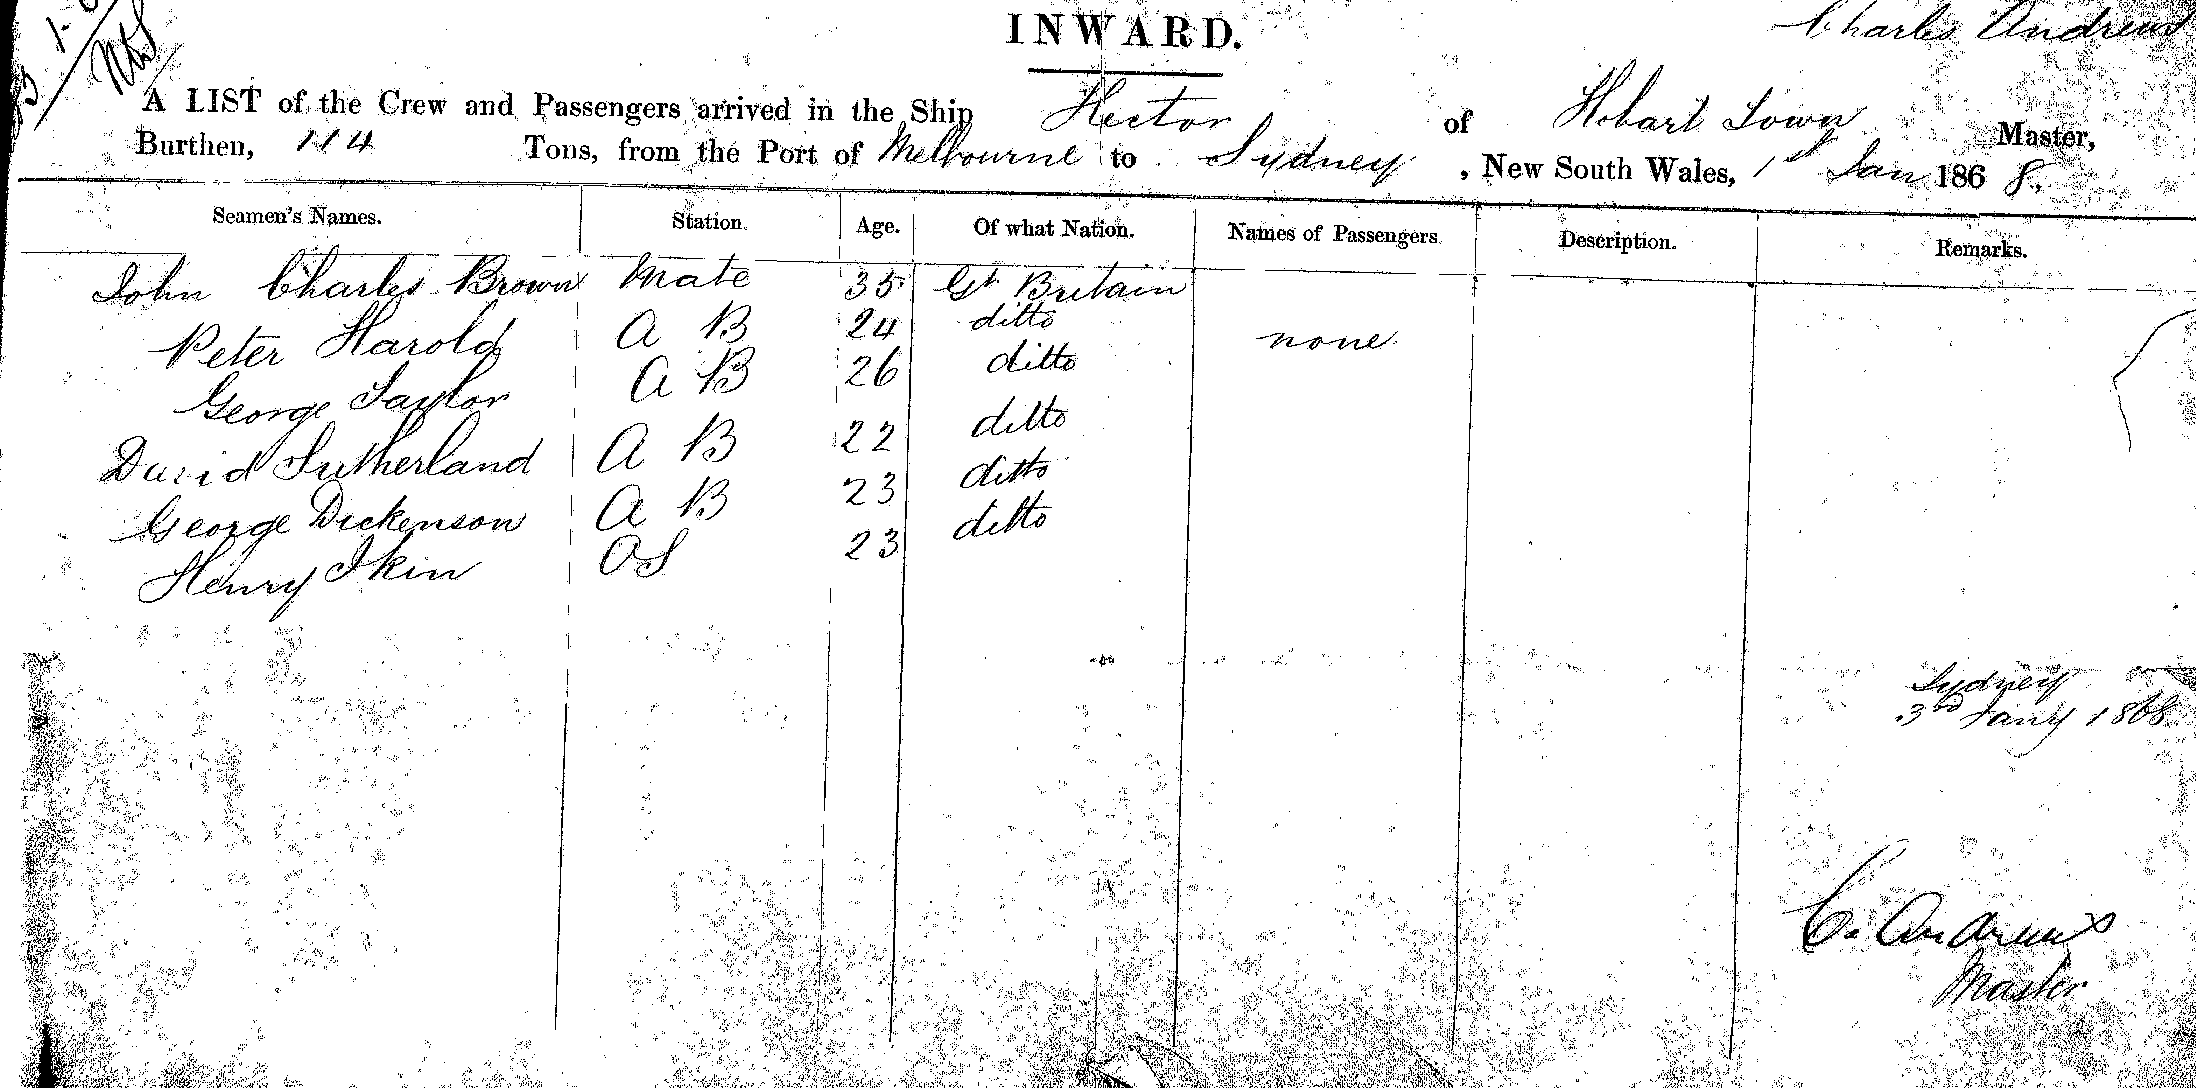 INWARD.
Charles Andrews
A LIST of the Crew and Passengers arrived in the Ship Hector of Hobart Town Master,
Burthen, 114 Tons, from the Port of Melbourne to Sydney, New South Wales, 1st Jan 1868.
Seamen's Names. Station. Age. Of what Nation. Names of Passengers. Description. Remarks.
John Charles Brown Mate 35 Gt Britain
Peter Harold A B 24 ditto none
George Taylor A B 26 ditto
David Sutherland A B 22 ditto
George Dickenson A B 23 ditto
Henry Ikin OS 23 ditto
Sydney
3rd Jany 1868
C. Andrews
Master